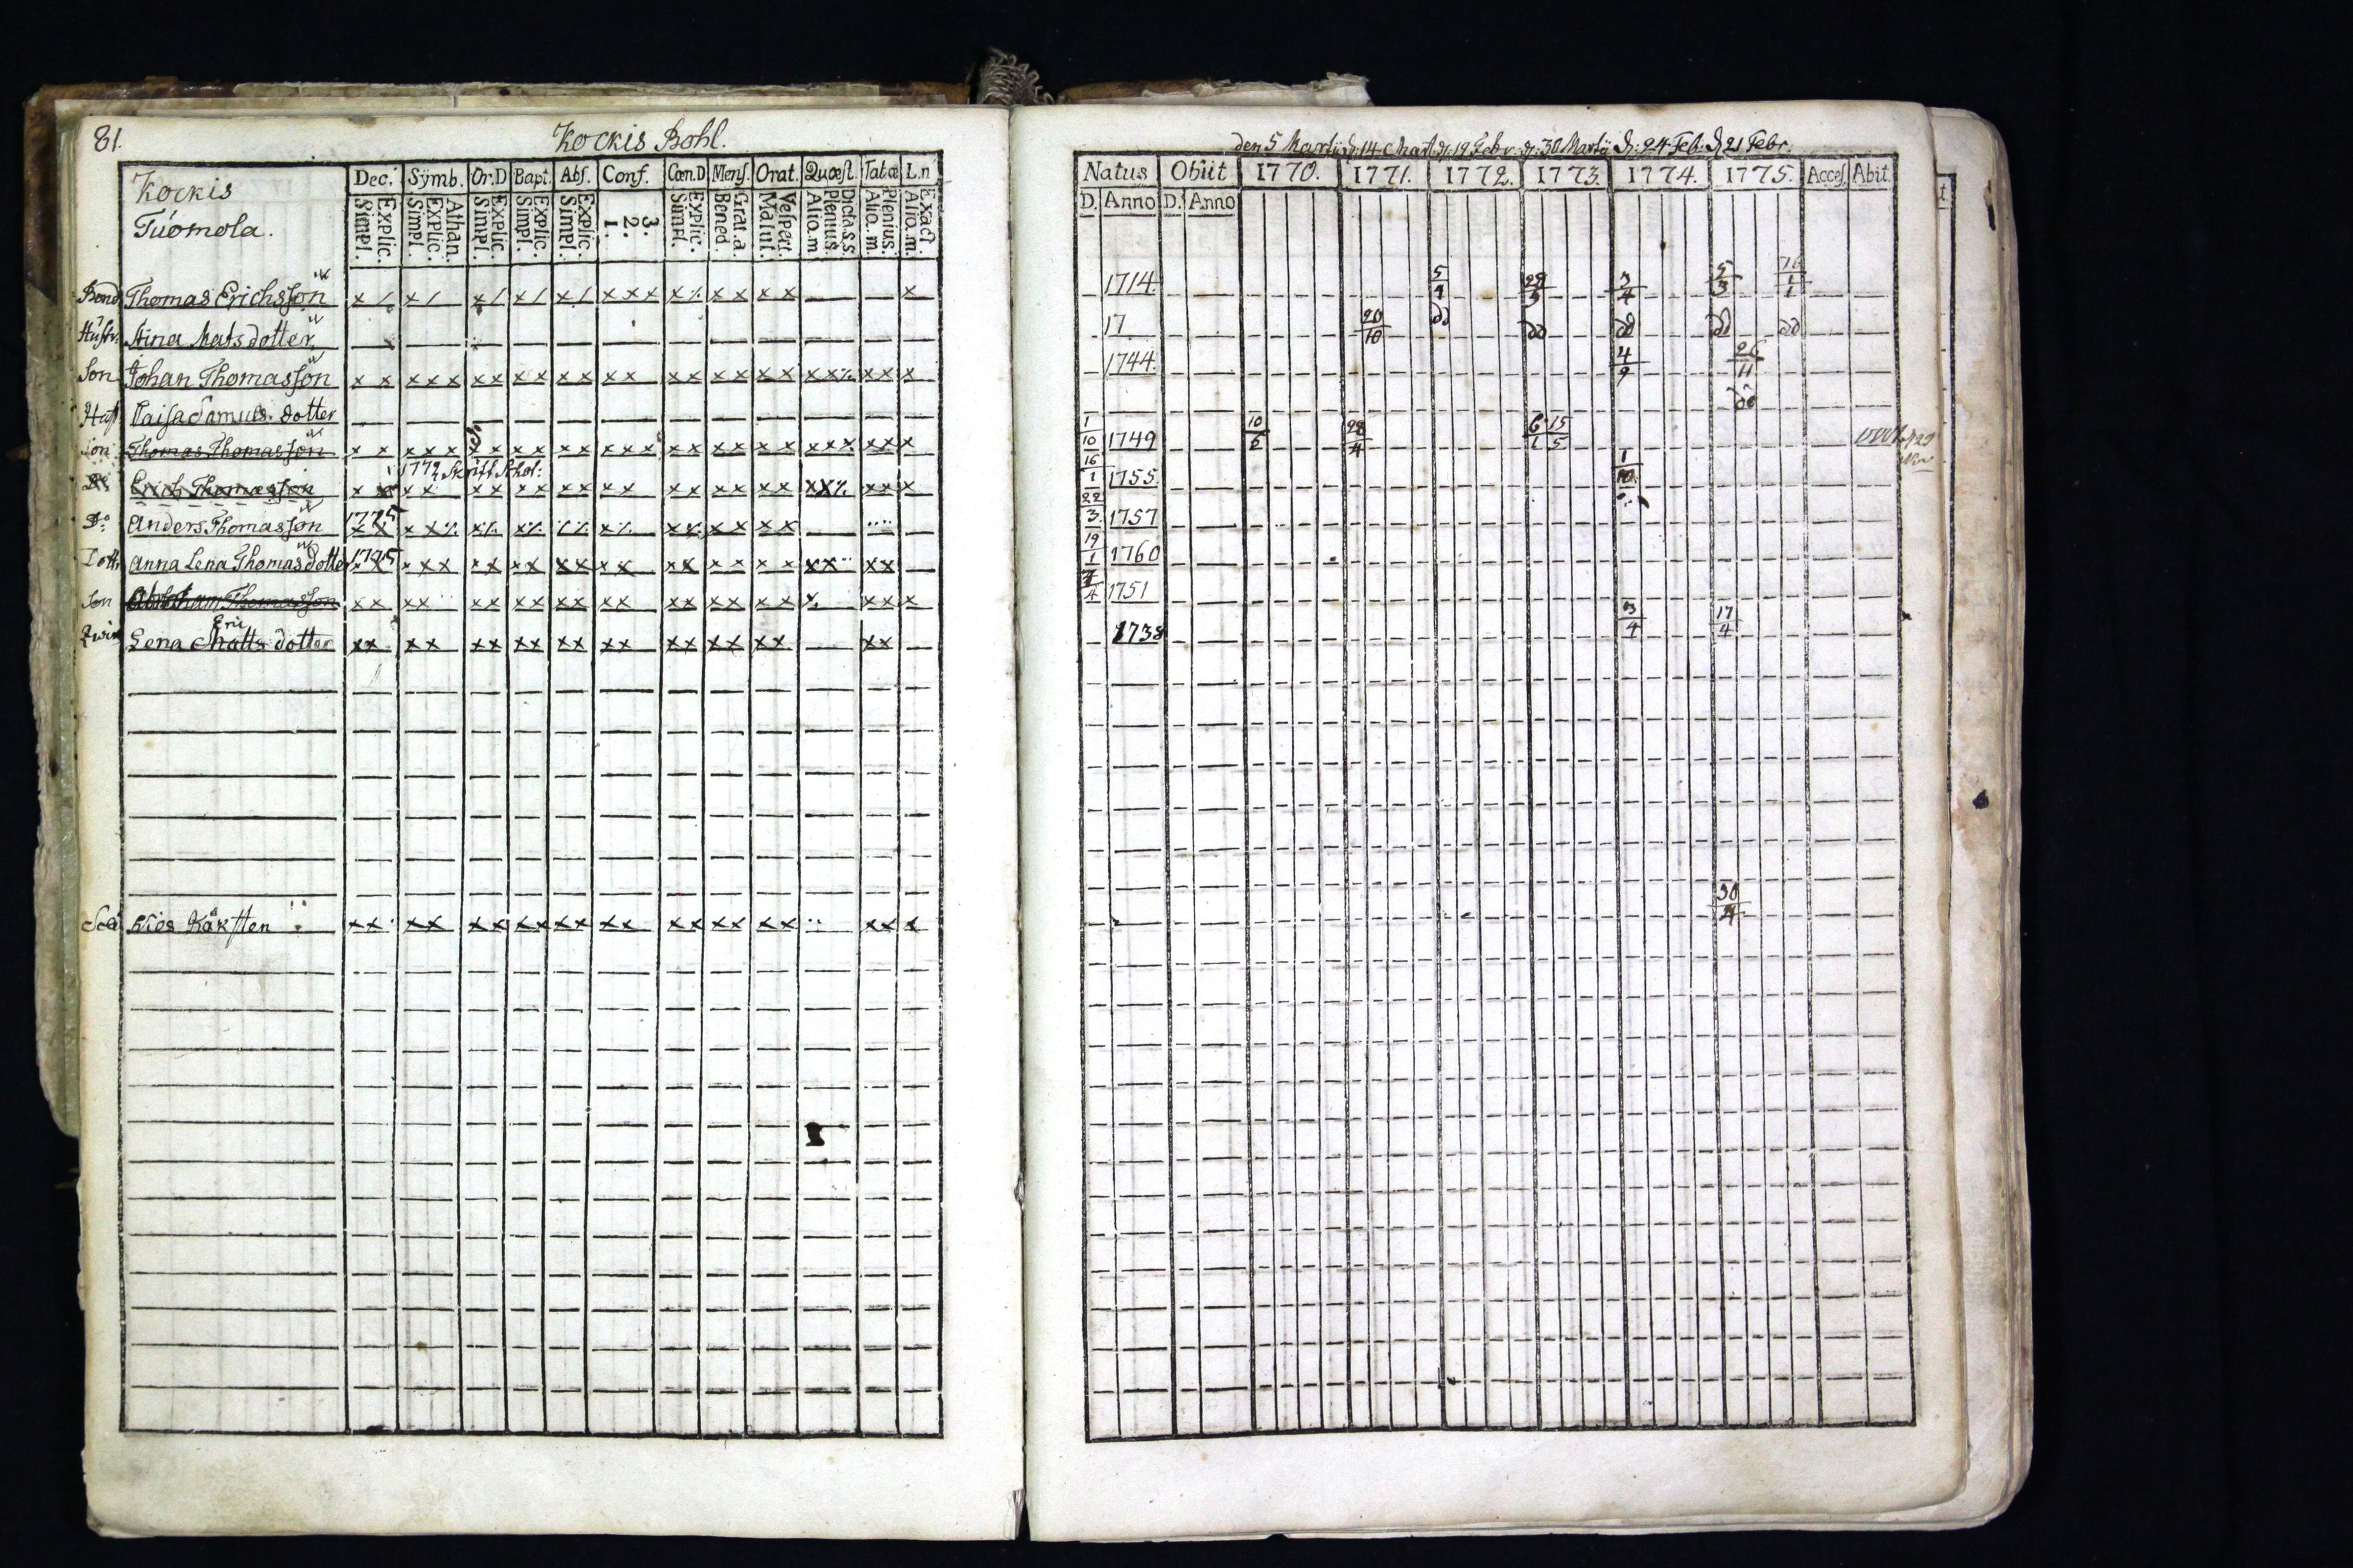 81.
Kockis Bohl.
Kockis
Túomola.
Dec. Sÿmb. Or.D Bapt. Abs. Conf. Cœn.D Mens. Orat. Quæst. Tabæ L.n
Simpl. Explic. Simpl. Explic. Athan. Simpl. Explic. Simpl. Explic. Simpl. Explic. 1. 2. 3. Simpl. Explic. Bened. Grat.a Matut. Vespert. Alio.m Plenius Dicta S.S. Alio.m. Plenius. Alio.m. Exact.
Bond Thomas Erichsson x / x / x / x / x / x x x x ٪ x x x x x
Hustr. Mats dotter
Son Johan Thomasson x x x x x x x x x x x x x x x x x x x x x ٪ x x x x
Samuels dotter
Son Thomas Thomasson x x x x x x x x x x x x x x x x x x x x x x x x x x x
1772 Skrift Skol:
Do Erich Thomasson x x x x x x x x x x x x x x x x x x x x ٪ x x x
Do Anders Thomasson 1775
Dott. Anna Lena Thomas dotter 1775
Son Abraham Thomasson x x x x x x x x x x x x x x x x x x x x x x
Eric
Lena Matts dotter x x x x x x x x x x x x x x x x x x x x
x x x x x x x x x x x x x x x x x x x x x
den 5 Martii d. 14 Mart. d. 19 Febr. d. 30 Martii d. 24 Feb. d 21 Febr.
Natus Obiit 1770. 1771. 1772. 1773. 1774. 1775. Acces. Abit.
D. Anno D. Anno
1714 5/4 3/4 5/3
17 20/10 do do do do do
1744. 4/9 26/11
do
1/10 1749 10/6 28/4 6/1 15/5
16/1 1755 1/10
22/3 1757
19/1 1760
7/4 1751
1738 3/4 17/4
30/4